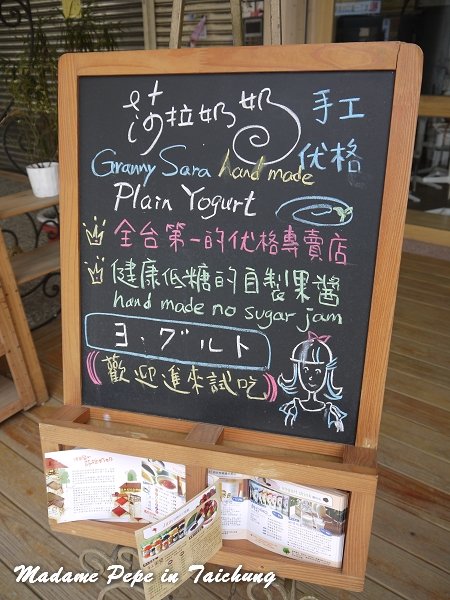 莎拉奶奶 手工
Granny Sara hand made 优格
Plain Yogurt
全台第一的优格專賣店
健康低糖的自製果醬
hand made no sugar jam
ヨ・グルト
歡迎進來試吃
Madame Pepe in Taichung